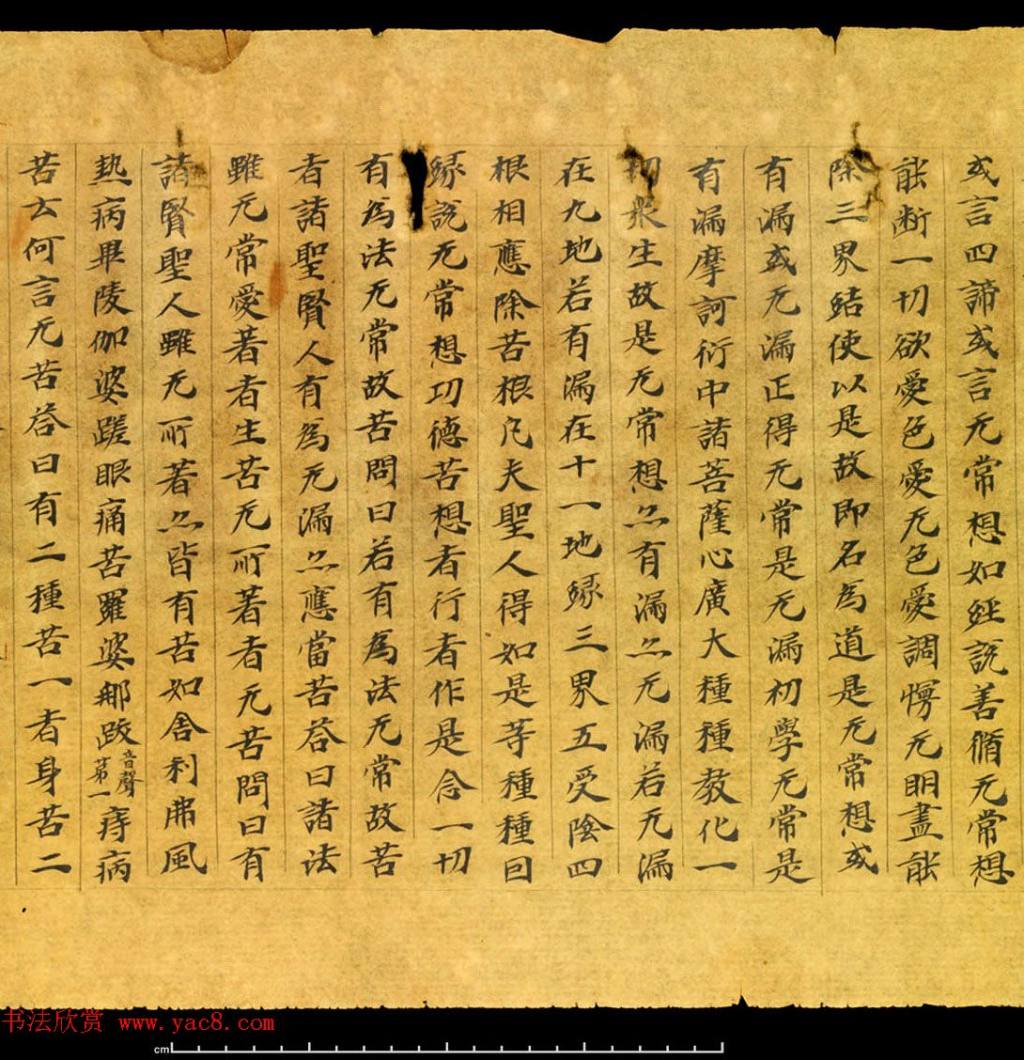 或言四諦或言无常想如經説善脩无常想
能断一切欲愛色愛无色愛調愕无明盡能
除三界結使以是故即名為道是无常想或
有漏或无漏正得无常是无漏初學无常是
有漏摩訶衍中諸菩薩心廣大種種教化一
切衆生故是无常想亦有漏亦无漏若无漏
在九地若有漏在十一地緣三界五受陰四
根相應除苦根凡夫聖人得如是等種種因
緣說无常想功德苦想者行者作是念一切
有為法无常故苦問曰若有為法无常故苦
者諸聖賢人有為无漏亦應當苦答曰諸法
雖无常愛著者生苦无所著者无苦問曰有
諸賢聖人雖无所著亦皆有苦如舍利弗風
熱病畢陵伽婆蹉眼痛苦羅婆那跋音聲第一痔病
苦云何言无苦答曰有二種苦一者身苦二
书法欣赏 www.yac8.com
cm